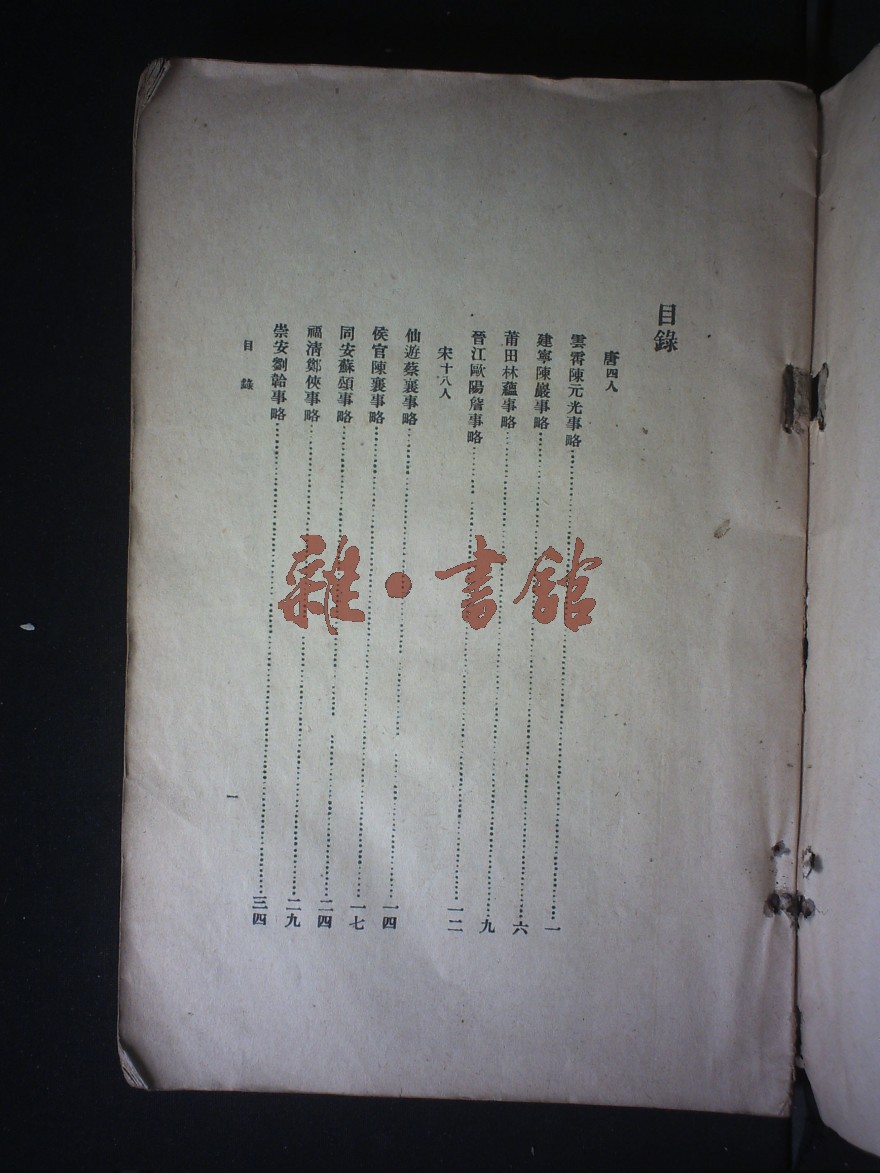 目錄
唐四人
雲霄陳元光事略……一
建寧陳巖事略……六
莆田林蘊事略……九
晉江歐陽詹事略……一二
宋十八人
仙遊蔡襄事略……一四
侯官陳襄事略……一七
同安蘇頌事略……二四
福清鄭俠事略……二九
崇安劉韐事略……三四
目錄
一
雜·書館